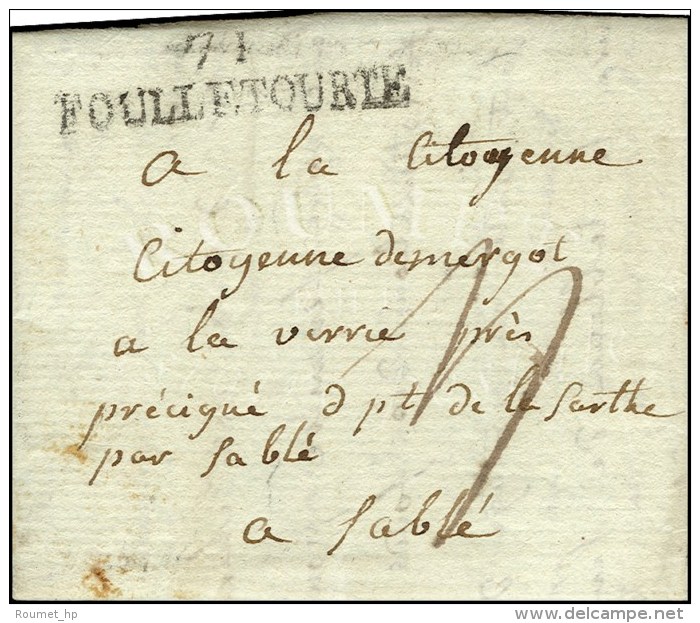 71
FOULLETOURTE
a la Citoyenne
Citoyenne demergot
a la verrie près
précigné dpt de la Sarthe
par Sablé
a Sablé
Roumet_hp
©delcampe.net